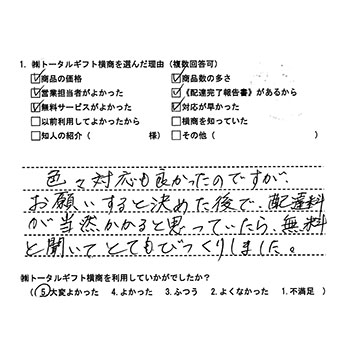 1. ㈱トータルギフト横商を選んだ理由（複数回答可）
☑商品の価格 ☑商品数の多さ
☑営業担当者がよかった ☑《配達完了報告書》があるから
☑無料サービスがよかった ☑対応が早かった
□以前利用してよかったから □横商を知っていた
□知人の紹介（ 様） □その他（ ）
色々対応も良かったのですが、
お願いすると決めた後で、配達料
が当然かかると思っていたら、無料
と聞いてとてもびっくりしました。
㈱トータルギフト横商を利用していかがでしたか？
（ 5.大変よかった 4.よかった 3.ふつう 2.よくなかった 1.不満足 ）